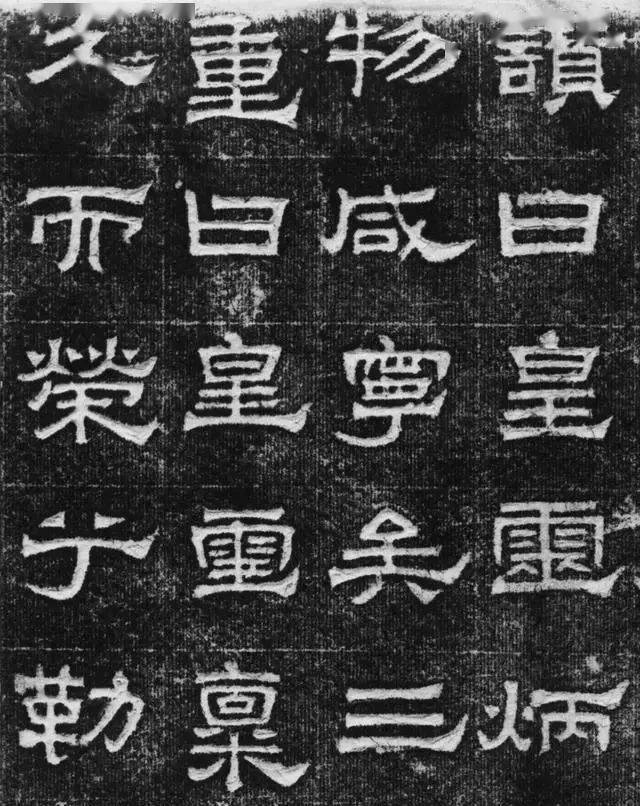 讚曰皇靈炳
物咸寧矣三
重曰皇靈稟
久而榮乎勒